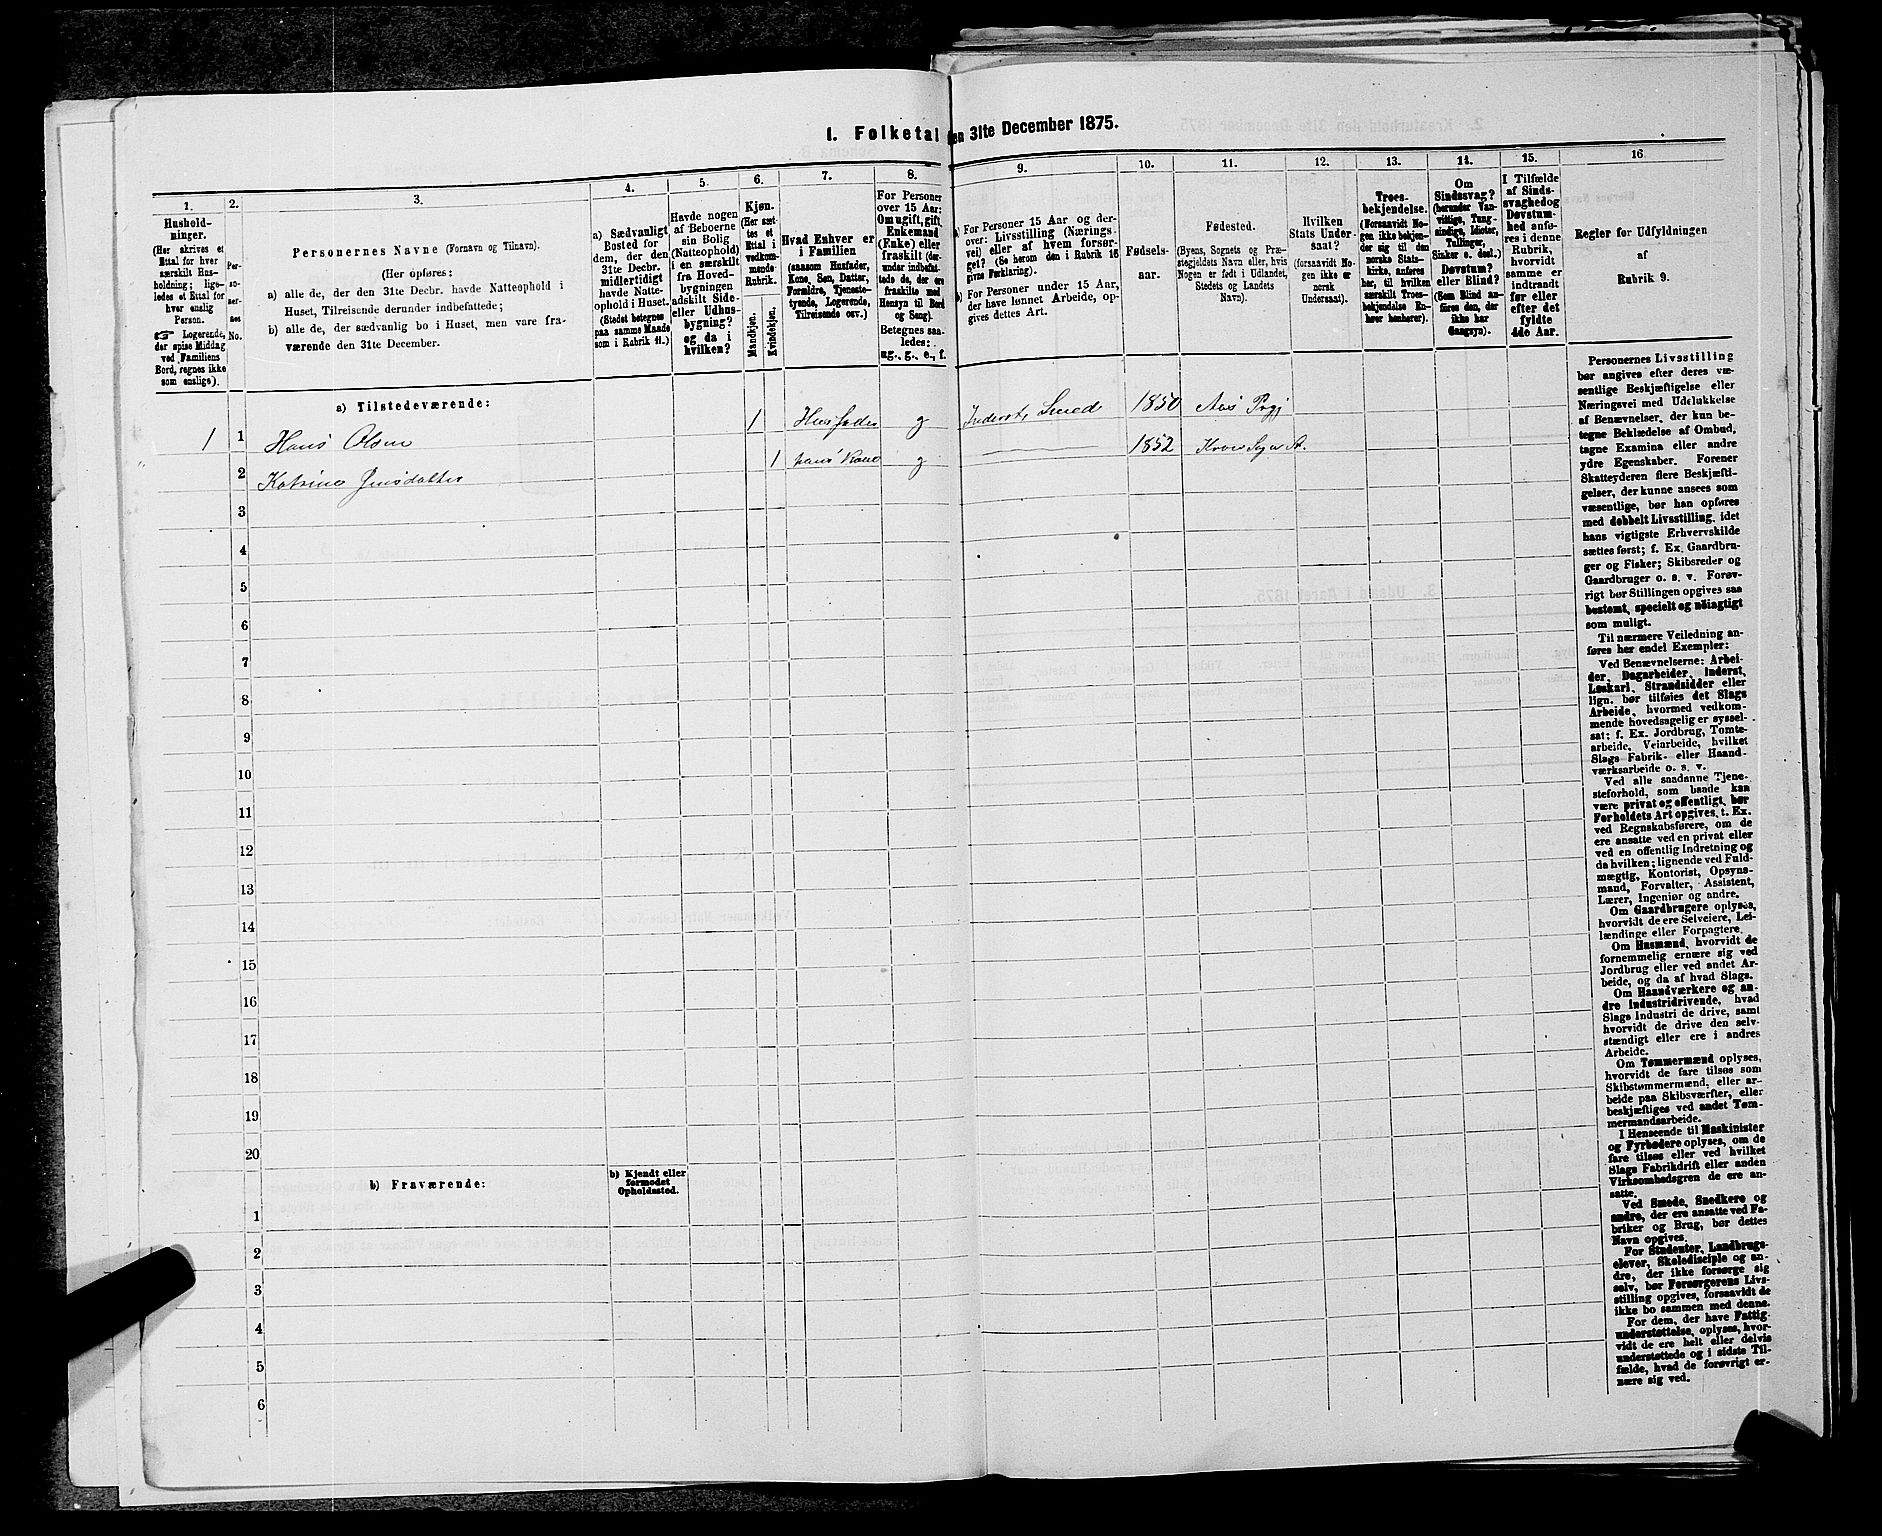 1. Folketal den 31te December 1875.
1.
Husholdninger.
(Her skrives et
Ettal for hver
særskilt Husholdning;
ligeledes
et Ettal for
hver enslig
Person.
☞ Logerende,
der spise Middag
ved Familiens
Bord, regnes ikke
som enslige).
2.
Personernes
No.
3.
Personernes Navne (Fornavn og Tilnavn).
(Her opføres:
a) alle de, der den 31te Decbr. havde Natteophold i
Huset, Tilreisende derunder indbefattede;
b) alle de, der sædvanlig bo i Huset, men vare fraværende
den 31te December.
4.
a) Sædvanligt
Bosted for
dem, der den
31te Decbr.
midlertidigt
havde Natteophold
i Huset.
(Stedet betegnes
paa samme Maade
som i Rubrik 11.)
5.
Havde nogen
af Beboerne
sin Bolig
(Natteophold)
i en særskilt
fra Hovedbygningen
adskilt Side-
eller Udhusbygning?
og da i
hvilken?
6.
Kjøn.
(Her sættes
et
Ettal i
vedkommende
Rubrik.
Mandkjøn.
Kvindekjøn.
7.
Hvad Enhver er
i Familien
(saasom Husfader,
Kone, Søn, Datter,
Forældre, Tjenestetyende,
Logerende,
Tilreisende osv.)
8.
For Personer
over 15 Aar:
Om ugift, gift,
Enkemand
(Enke) eller
fraskilt (derunder
indbefattede
de, der ere
fraskilte med
Hensyn til Bord
og Seng).
Betegnes saaledes:
ug., g., e., f.
9.
a) For Personer 15 Aar og derover:
Livsstilling (Næringsvei)
eller af hvem forsørget?
(Se herom den i Rubrik 16
givne Forklaring).
b) For Personer under 15 Aar,
der have lønnet Arbeide, opgives
dettes Art.
10.
Fødselsaar.
11.
Fødested.
(Byens, Sognets og Præstegjeldets
Navn eller, hvis
Nogen er født i Udlandet,
Stedets og Landets
Navn).
12.
Hvilken
Stats Undersaat?
(forsaavidt Nogen
ikke er
norsk
Undersaat).
13.
Troesbekjendelse.
(Forsaavidt Nogen
ikke bekjender
sig til den
norske Statskirke,
anføres
her, til hvilken
særskilt Troesbekjendelse
Enhver
henhører).
14.
Om
Sindssvag?
(herunder Vanvittige,
Tungsindige,
Idioter,
Tullinger,
Sinker o. desl.)
Døvstum?
eller Blind?
(Som Blind anføres
den, der
ikke har
Gangsyn).
15.
I Tilfælde
af Sindssvaghed
og
Døvstumhed
anføres
i denne
Rubrik,
hvorvidt
samme er
indtraadt
før eller
efter det
fyldte
4de Aar.
16
Regler for Udfyldningen
af
Rubrik 9.
a) Tilstedeværende:
1 1 Hans Olsen 1 Husfader g Inderst, Smed 1850 Aas Prgj
" 2 Katrine Jensdatter 1 hans Kone g 1852
3
4
5
6
7
8
9
10
11
12
13
14
15
16
17
18
19
20
b) Fraværende:
b) Kjendt eller
formodet
Opholdssted.
1
2
3
4
5
6
Personernes Livsstilling
bør angives efter deres væsentlige
Beskjæftigelse eller
Næringsvei med Udelukkelse
af Benævnelser, der kun betegne
Beklædelse af Ombud,
tagne Examina eller andre
ydre Egenskaber. Forener
Skatteyderen flere Beskjæftigelser,
der kunne ansees som
væsentlige, bør han opføres
med dobbelt Livsstilling, idet
hans vigtigste Erhvervskilde
sættes først; f. Ex. Gaardbruger
og Fisker; Skibsreder og
Gaardbruger o. s. v. Forøvrigt
bør Stillingen opgives saa
bestemt, specielt og nøiagtigt
som muligt.
Til nærmere Veiledning anføres
her endel Exempler:
Ved Benævnelserne: Arbeider,
Dagarbeider, Inderst,
Løskarl, Strandsidder eller
lign. bør tilføies det Slags
Arbeide, hvormed vedkommende
hovedsagelig er sysselsat;
f. Ex. Jordbrug, Tomtearbeide,
Veiarbeide, hvilket
Slags Fabrik- eller Haandværksarbeide
o. s. v.
Ved alle saadanne Tjenesteforhold,
som baade kan
være privat og offentligt, bør
Forholdets Art opgives, f. Ex.
ved Regnskabsførere, om de
ere ansatte ved en privat eller
ved en offentlig Indretning og
da hvilken; lignende ved Fuldmægtig,
Kontorist, Opsynsmand,
Forvalter, Assistent,
Lærer, Ingeniør og andre.
Om Gaardbrugere oplyses,
hvorvidt de ere Selveiere, Leilændinge
eller Forpagtere.
Om Husmænd, hvorvidt de
fornemmelig ernære sig ved
Jordbrug eller ved andet Arbeide,
og da af hvad Slags.
Om Haandværkere og andre
Industridrivende, hvad
Slags Industri de drive, samt
hvorvidt de drive den selvstændigt
eller ere i andres
Arbeide.
Om Tømmermænd oplyses,
hvorvidt de fare tilsøs som
Skibstømmermænd, eller arbeide
paa Skibsværfter, eller
beskjæftiges ved andet Tømmermandsarbeide.
I Henseende til Maskinister
og Fyrbødere oplyses, om de
fare tilsøs eller ved hvilket
Slags Fabrikdrift eller anden
Virksomhedsgren de ere ansatte.
Ved Smede, Snedkere og
andre, der ere ansatte ved Fabriker
og Brug, bør dettes
Navn opgives.
For Studenter, Landbrugselever,
Skoledisciple og andre,
der ikke forsørge sig
selv, bør Forsørgerens Livsstilling
opgives, forsaavidt de
ikke bo sammen med denne.
For dem, der have Fattigunderstøttelse,
oplyses, hvorvidt
de ere helt eller delvis
understøttede og i sidste Tilfælde,
hvad de forøvrigt ernære
sig ved.